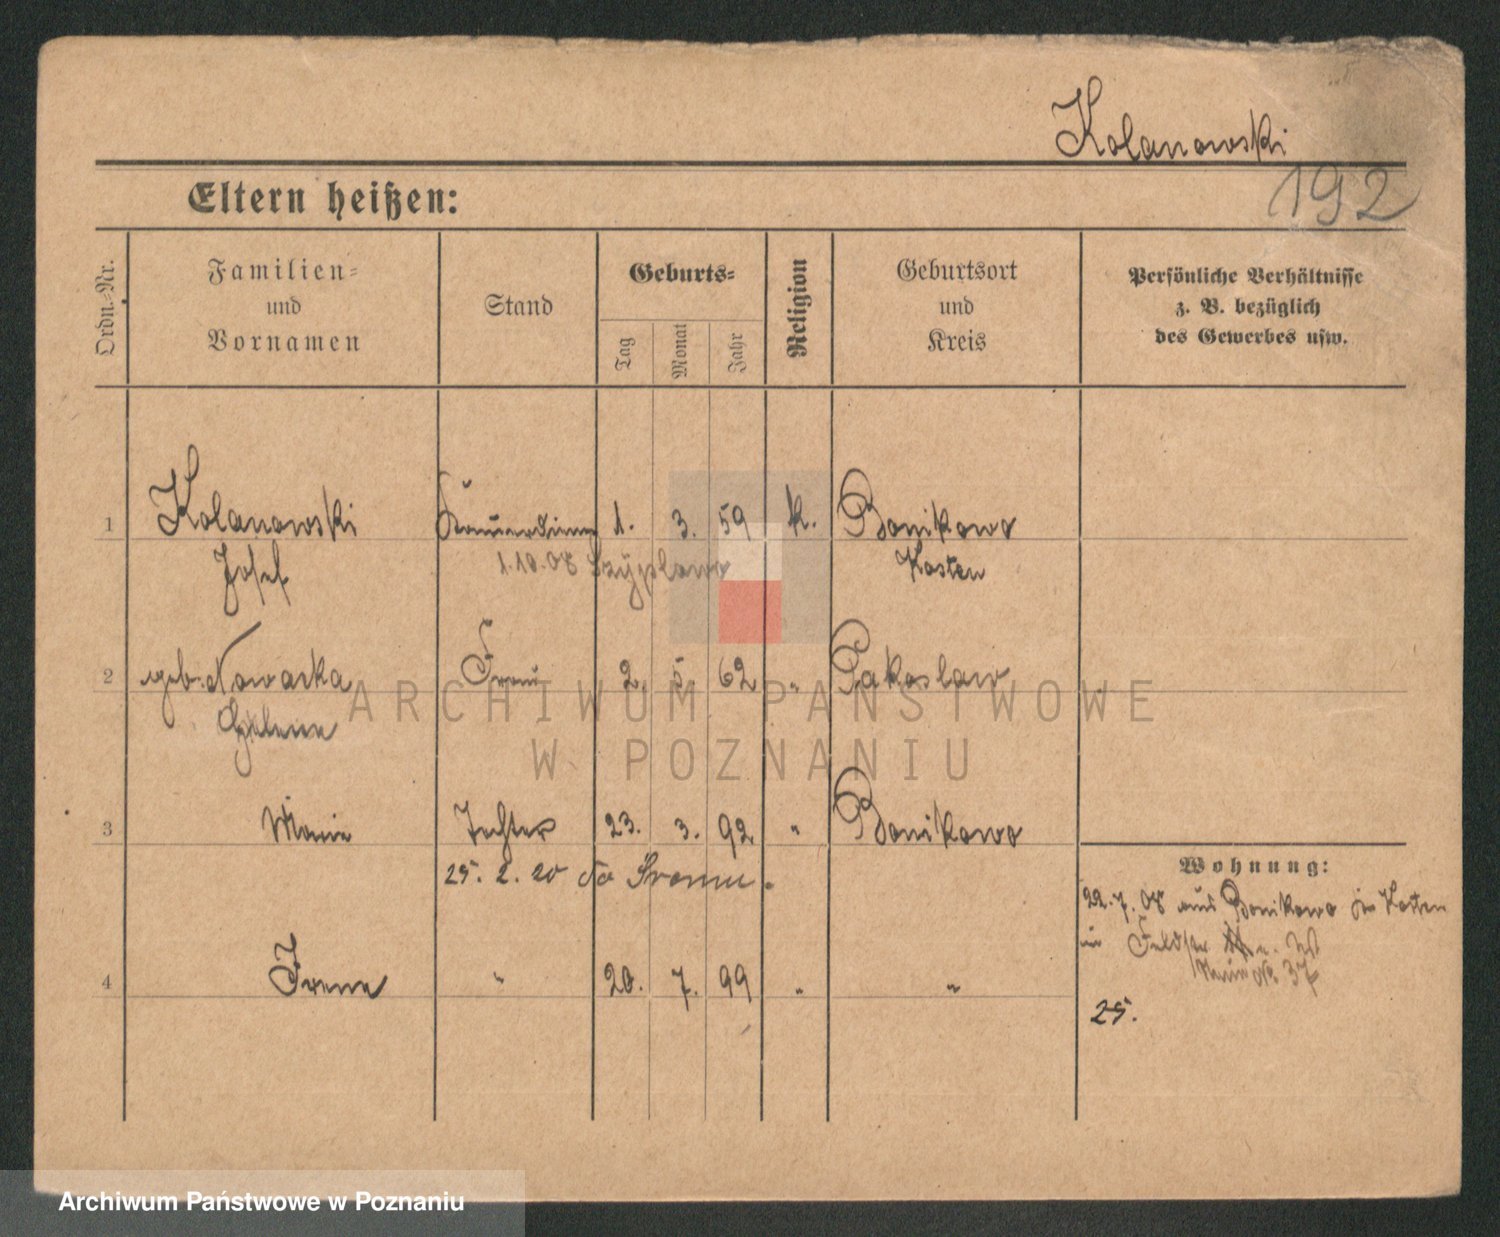 Kolanowski
192
Eltern heißen:
Ordn.-Nr.
Familien-
und
Vornamen
Stand
Geburts-
Tag
Monat
Jahr
Religion
Geburtsort
und
Kreis
Persönliche Verhältnisse
z. B. bezüglich
des Gewerbes usw.
1 Kolanowski 1. 3. 59 k. Bonikowo
Josef 1.10.08 Kosten
2 geb. Nowacka Frau 2. 5. 62 " Pakoslaw
Helene
3 Marie Tochter 23. 3. 92 " Bonikowo
25. 2. 20
Wohnung:
22.7.08 aus Bonikowo Kosten
in Feldstr
37
4 Irene " 20. 7. 99 " "
25.
ARCHIWUM PAŃSTWOWE
W POZNANIU
Archiwum Państwowe w Poznaniu